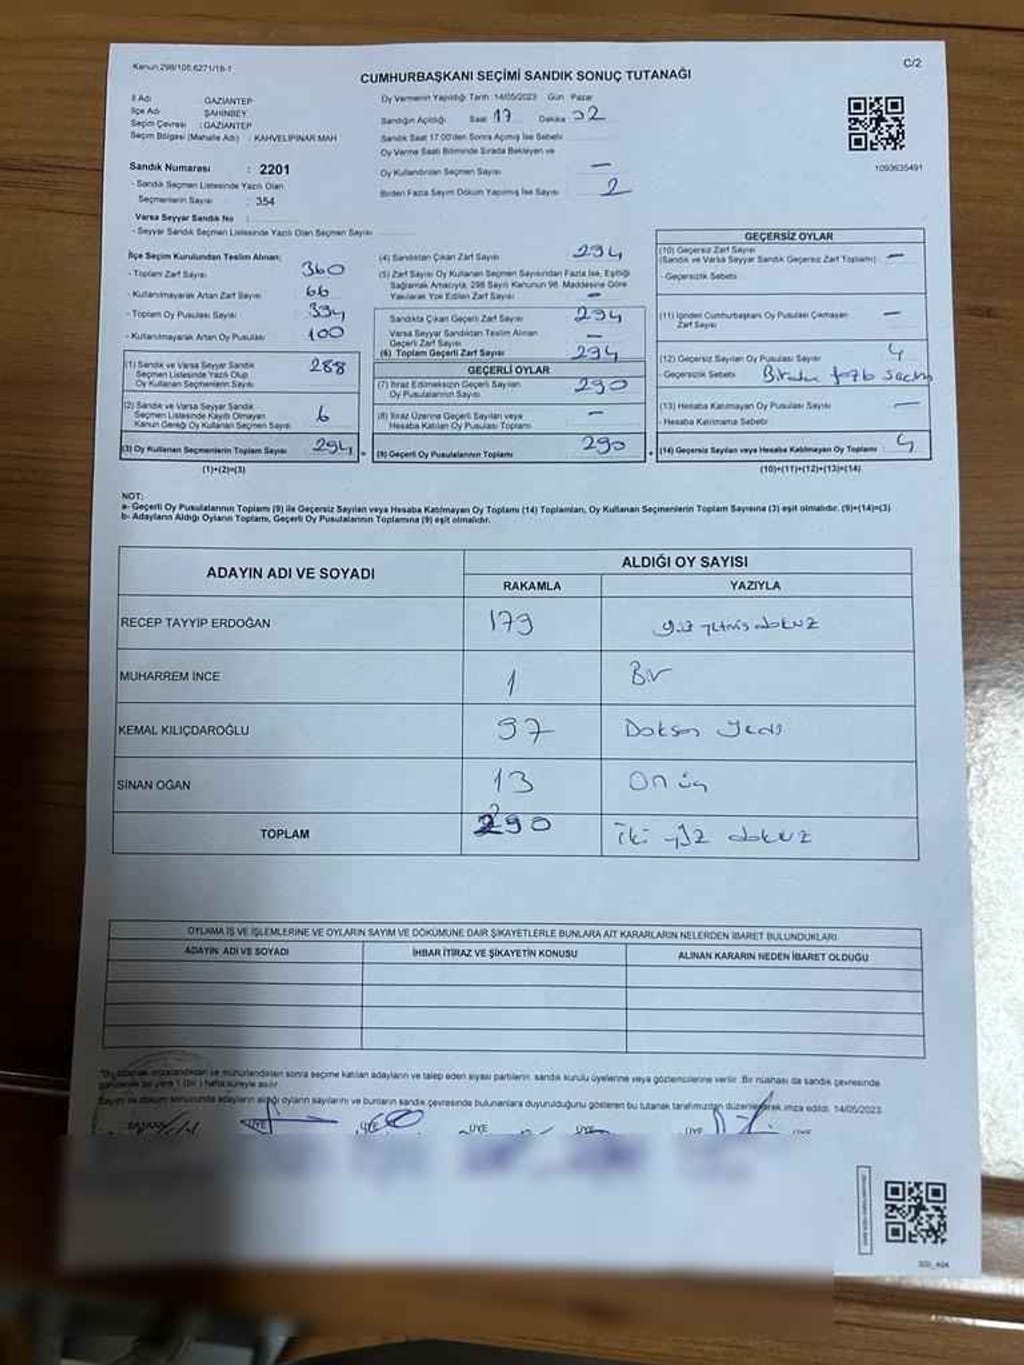 Kanun:298/105;6271/19-1
C/2
CUMHURBAŞKANI SEÇİMİ SANDIK SONUÇ TUTANAĞI
İl Adı : GAZİANTEP
İlçe Adı : ŞAHİNBEY
Seçim Çevresi : GAZİANTEP
Seçim Bölgesi (Mahalle Adı) : KAHVELİPINAR MAH
Sandık Numarası : 2201
- Sandık Seçmen Listesinde Yazılı Olan
Seçmenlerin Sayısı : 354
Varsa Seyyar Sandık No :
- Seyyar Sandık Seçmen Listesinde Yazılı Olan Seçmen Sayısı :
Oy Vermenin Yapıldığı Tarih :14/05/2023 Gün : Pazar
Sandığın Açıldığı Saat 17 Dakika 02
Sandık Saat 17.00'den Sonra Açılmış İse Sebebi
Oy Verme Saati Bitiminde Sırada Bekleyen ve
Oy Kullandırılan Seçmen Sayısı —
Birden Fazla Sayım Döküm Yapılmış İse Sayısı 2
1093635491
İlçe Seçim Kurulundan Teslim Alınan:
- Toplam Zarf Sayısı 360
- Kullanılmayarak Artan Zarf Sayısı 66
- Toplam Oy Pusulası Sayısı 394
- Kullanılmayarak Artan Oy Pusulası 100
(1) Sandık ve Varsa Seyyar Sandık
Seçmen Listesinde Yazılı Olup
Oy Kullanan Seçmenlerin Sayısı 288
(2) Sandık ve Varsa Seyyar Sandık
Seçmen Listesinde Kayıtlı Olmayan
Kanun Gereği Oy Kullanan Seçmen Sayısı 6
(3) Oy Kullanan Seçmenlerin Toplam Sayısı 294
(1)+(2)=(3)
(4) Sandıktan Çıkan Zarf Sayısı 294
(5) Zarf Sayısı Oy Kullanan Seçmen Sayısından Fazla İse, Eşitliği
Sağlamak Amacıyla, 298 Sayılı Kanunun 98. Maddesine Göre
Yakılarak Yok Edilen Zarf Sayısı —
Sandıkta Çıkan Geçerli Zarf Sayısı 294
Varsa Seyyar Sandıktan Teslim Alınan
Geçerli Zarf Sayısı —
(6) Toplam Geçerli Zarf Sayısı 294
GEÇERLİ OYLAR
(7) İtiraz Edilmeksizin Geçerli Sayılan
Oy Pusulalarının Sayısı 290
(8) İtiraz Üzerine Geçerli Sayılan veya
Hesaba Katılan Oy Pusulaları Toplamı —
(9) Geçerli Oy Pusulalarının Toplamı 290
GEÇERSİZ OYLAR
(10) Geçersiz Zarf Sayısı
(Sandık ve Varsa Seyyar Sandık Geçersiz Zarf Toplamı) —
- Geçersizlik Sebebi
(11) İçinden Cumhurbaşkanı Oy Pusulası Çıkmayan
Zarf Sayısı —
(12) Geçersiz Sayılan Oy Pusulası Sayısı 4
- Geçersizlik Sebebi Birden fazla
(13) Hesaba Katılmayan Oy Pusulası Sayısı —
- Hesaba Katılmama Sebebi
(14) Geçersiz Sayılan veya Hesaba Katılmayan Oy Toplamı : 4
(10)+(11)+(12)+(13)=(14)
NOT:
a- Geçerli Oy Pusulalarının Toplamı (9) ile Geçersiz Sayılan veya Hesaba Katılmayan Oy Toplamı (14) Toplamları, Oy Kullanan Seçmenlerin Toplam Sayısına (3) eşit olmalıdır. (9)+(14)=(3)
b- Adayların Aldığı Oyların Toplamı, Geçerli Oy Pusulalarının Toplamına (9) eşit olmalıdır.
ADAYIN ADI VE SOYADI
ALDIĞI OY SAYISI
RAKAMLA YAZIYLA
RECEP TAYYİP ERDOĞAN 179 yüz yetmiş dokuz
MUHARREM İNCE 1 Bir
KEMAL KILIÇDAROĞLU 97 Doksan Yedi
SİNAN OĞAN 13 On üç
TOPLAM 290 iki yüz dokuz
OYLAMA İŞ VE İŞLEMLERİNE VE OYLARIN SAYIM VE DÖKÜMÜNE DAİR ŞİKAYETLERLE BUNLARA AİT KARARLARIN NELERDEN İBARET BULUNDUKLARI
ADAYIN ADI VE SOYADI İHBAR İTİRAZ VE ŞİKAYETİN KONUSU ALINAN KARARIN NEDEN İBARET OLDUĞU
tutanak imzalandıktan ve mühürlendikten sonra seçime katılan adayların ve talep eden siyasi partilerin sandık kurulu üyelerine veya gözlemcilerine verilir. Bir nüshası da sandık çevresinde
bir yere 1 (bir) hafta süreyle asılır.
Sayım ve döküm sonucunda adayların aldığı oyların sayılarını ve bunların sandık çevresinde bulunanlara duyurulduğunu gösteren bu tutanak tarafımızdan düzenlenerek imza edildi. 14/05/2023
BAŞKAN ÜYE ÜYE ÜYE ÜYE ÜYE ÜYE